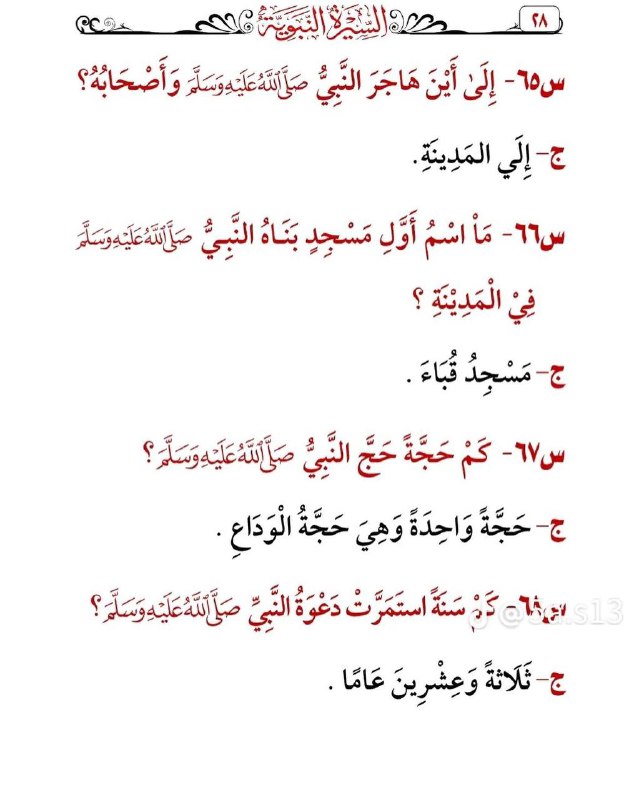 ٢٨
السِّيرَةُ النَّبَوِيَّة
س٦٥- إِلَىٰ أَيْنَ هَاجَرَ النَّبِيُّ صَلَّى اللَّهُ عَلَيْهِ وَسَلَّمَ وَأَصْحَابُهُ؟
ج- إِلَي المَدِينَةِ.
س٦٦- مَاْ اسْمُ أَوَّلِ مَسْجِدٍ بَنَاهُ النَّبِيُّ صَلَّى اللَّهُ عَلَيْهِ وَسَلَّمَ
فِيْ الْمَدِيْنَةِ ؟
ج- مَسْجِدُ قُبَاءَ .
س٦٧- كَمْ حَجَّةً حَجَّ النَّبِيُّ صَلَّى اللَّهُ عَلَيْهِ وَسَلَّمَ؟
ج- حَجَّةً وَاحِدَةً وَهِيَ حَجَّةُ الْوَدَاعِ .
س٦٨- كَمْ سَنَةً استَمَرَّتْ دَعْوَةُ النَّبِيِّ صَلَّى اللَّهُ عَلَيْهِ وَسَلَّمَ؟
ج- ثَلَاثةً وَعِشْرِينَ عَامًا .